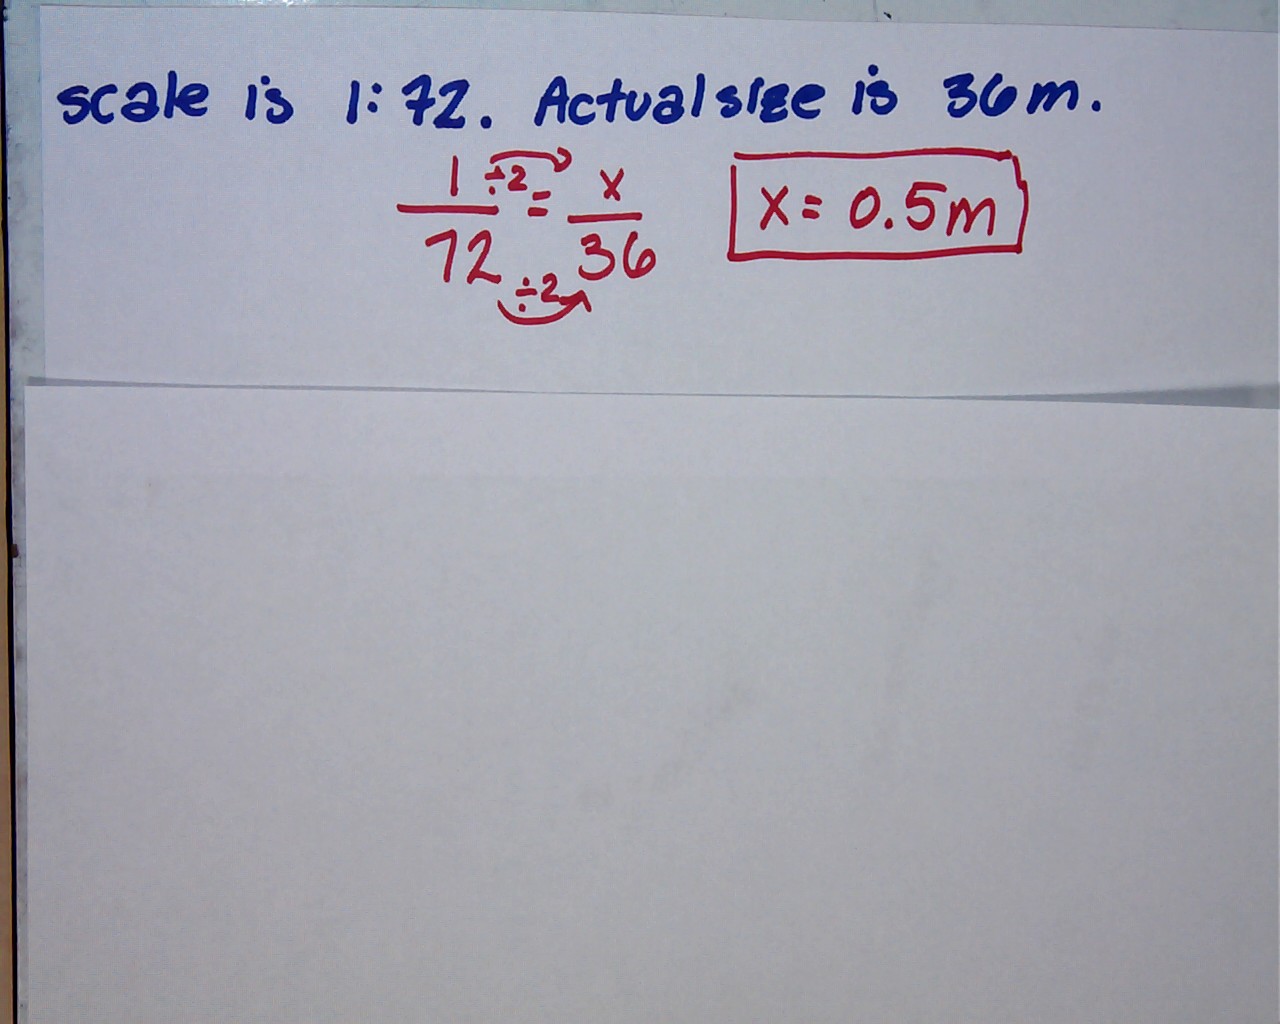 scale is 1:72. Actual size is 36m.
1 ÷2 = x
72 ÷2 36
x = 0.5m